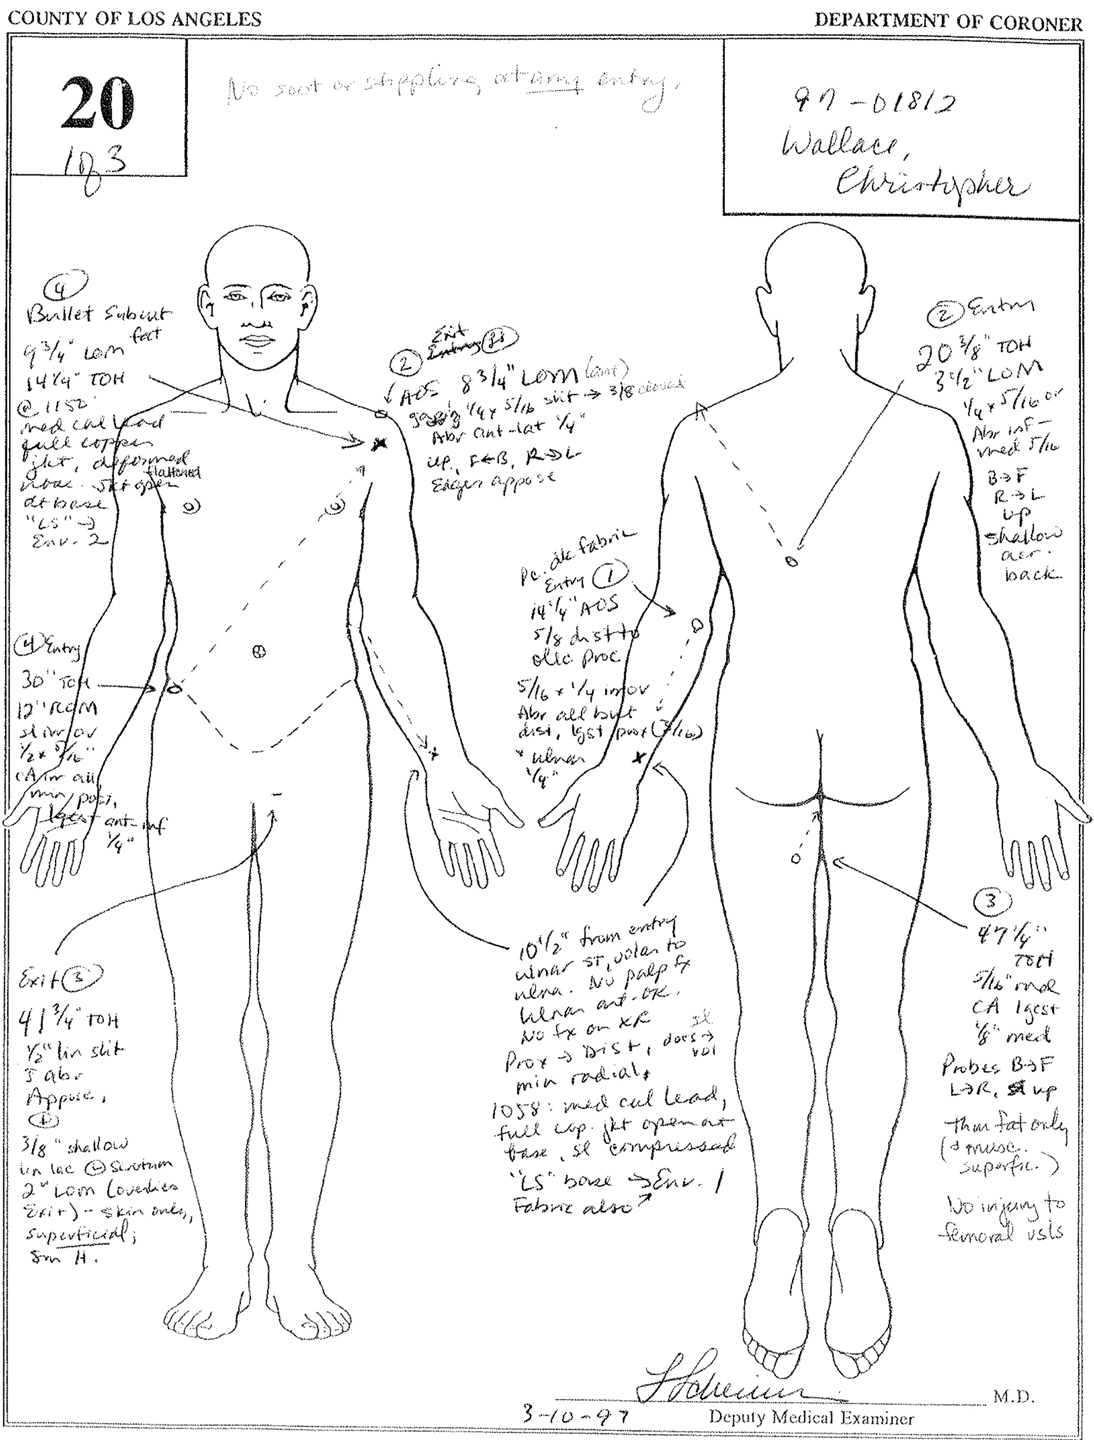 COUNTY OF LOS ANGELES
DEPARTMENT OF CORONER
20
1 of 3
No soot or stippling at any entry.
97-01812
Wallace,
Christopher
4
Bullet Subcut
9 3/4" LOM
14 1/4" TOH
@ 1152
med cal lead
full copper
jkt, deformed
flattened
nose. Jkt open
at base
"LS" →
Env. 2
2 Exit
Entry
AOS 8 3/4" LOM (ant)
gaping 1/4 x 5/16 slit → 3/8 closed
Abr ant-lat 1/4"
up, F←B, R→L
Edges appose
2 Entry
20 3/8" TOH
3 1/2" LOM
1/4 x 5/16 ov
Abr inf-
med 5/16
B→F
R→L
up
shallow
acr.
back
Pc. dk fabric
Entry 1
14 1/4" AOS
5/8 dist to
olec proc
5/16 x 1/4 irr ov
Abr all but
dist, lgst prox (3/16)
* ulnar
1/4"
4 Entry
30" TOH
12" ROM
sl irr ov
1/2 x 5/16"
CA irr all
min post,
lgest ant-inf
1/4"
Exit 3
41 3/4" TOH
1/2" lin slit
abr
Appose,
3/8" shallow
lin lac L Scrotum
2" LOM (overlies
Exit) - skin only,
superficial;
Sm H.
10 1/2" from entry
ulnar st, volar to
ulna. No palp fx
Ulnar art-OK.
No fx on XR
Prox → Dist, does → sl vol
min radial.
1058: med cal lead,
full cop. jkt open at
base, sl compressed
"LS" base → Env. 1
Fabric also
3
47 1/4"
TOH
5/16" rnd
CA lgest
1/8" med
Probes B→F
L→R, up
thru fat only
(+ musc.
superfic.)
No injury to
femoral vsls
M.D.
3-10-97
Deputy Medical Examiner